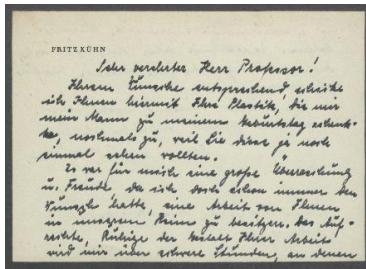 FRITZ KÜHN
Sehr verehrter Herr Professor!
Ihrem Wunsche entsprechend, schicke
ich Ihnen hiermit Ihre Plastik, die mir
mein Mann zu meinem Geburtstag schenk-
te, nochmals zu, weil Sie diese ja noch
einmal sehen wollten.
Es war für mich eine große Überraschung
u. Freude, da ich doch schon immer den
Wunsch hatte, eine Arbeit von Ihnen
in unserem Heim zu besitzen. Das Auf-
rechte, Ruhige der Gestalt Ihrer Arbeit
wird mir über schwere Stunden, an denen